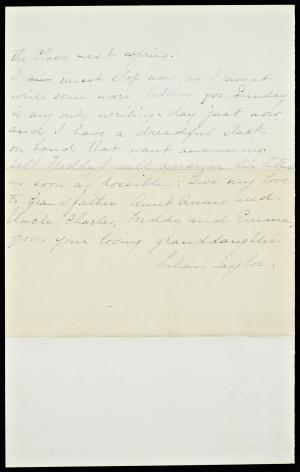 the Class next spring.
I am must stop now as I must
write some more letters for Sunday
is my only writing-day just now
and I have a dreadful stack
on hand that want answering.
Tell Freddy I will answer his letter
as soon as possible. Give my love
to Grandfather, Aunt Annie and
Uncle Charles, Freddy and Emma,
from your loving granddaughter
Lilian Taylor.